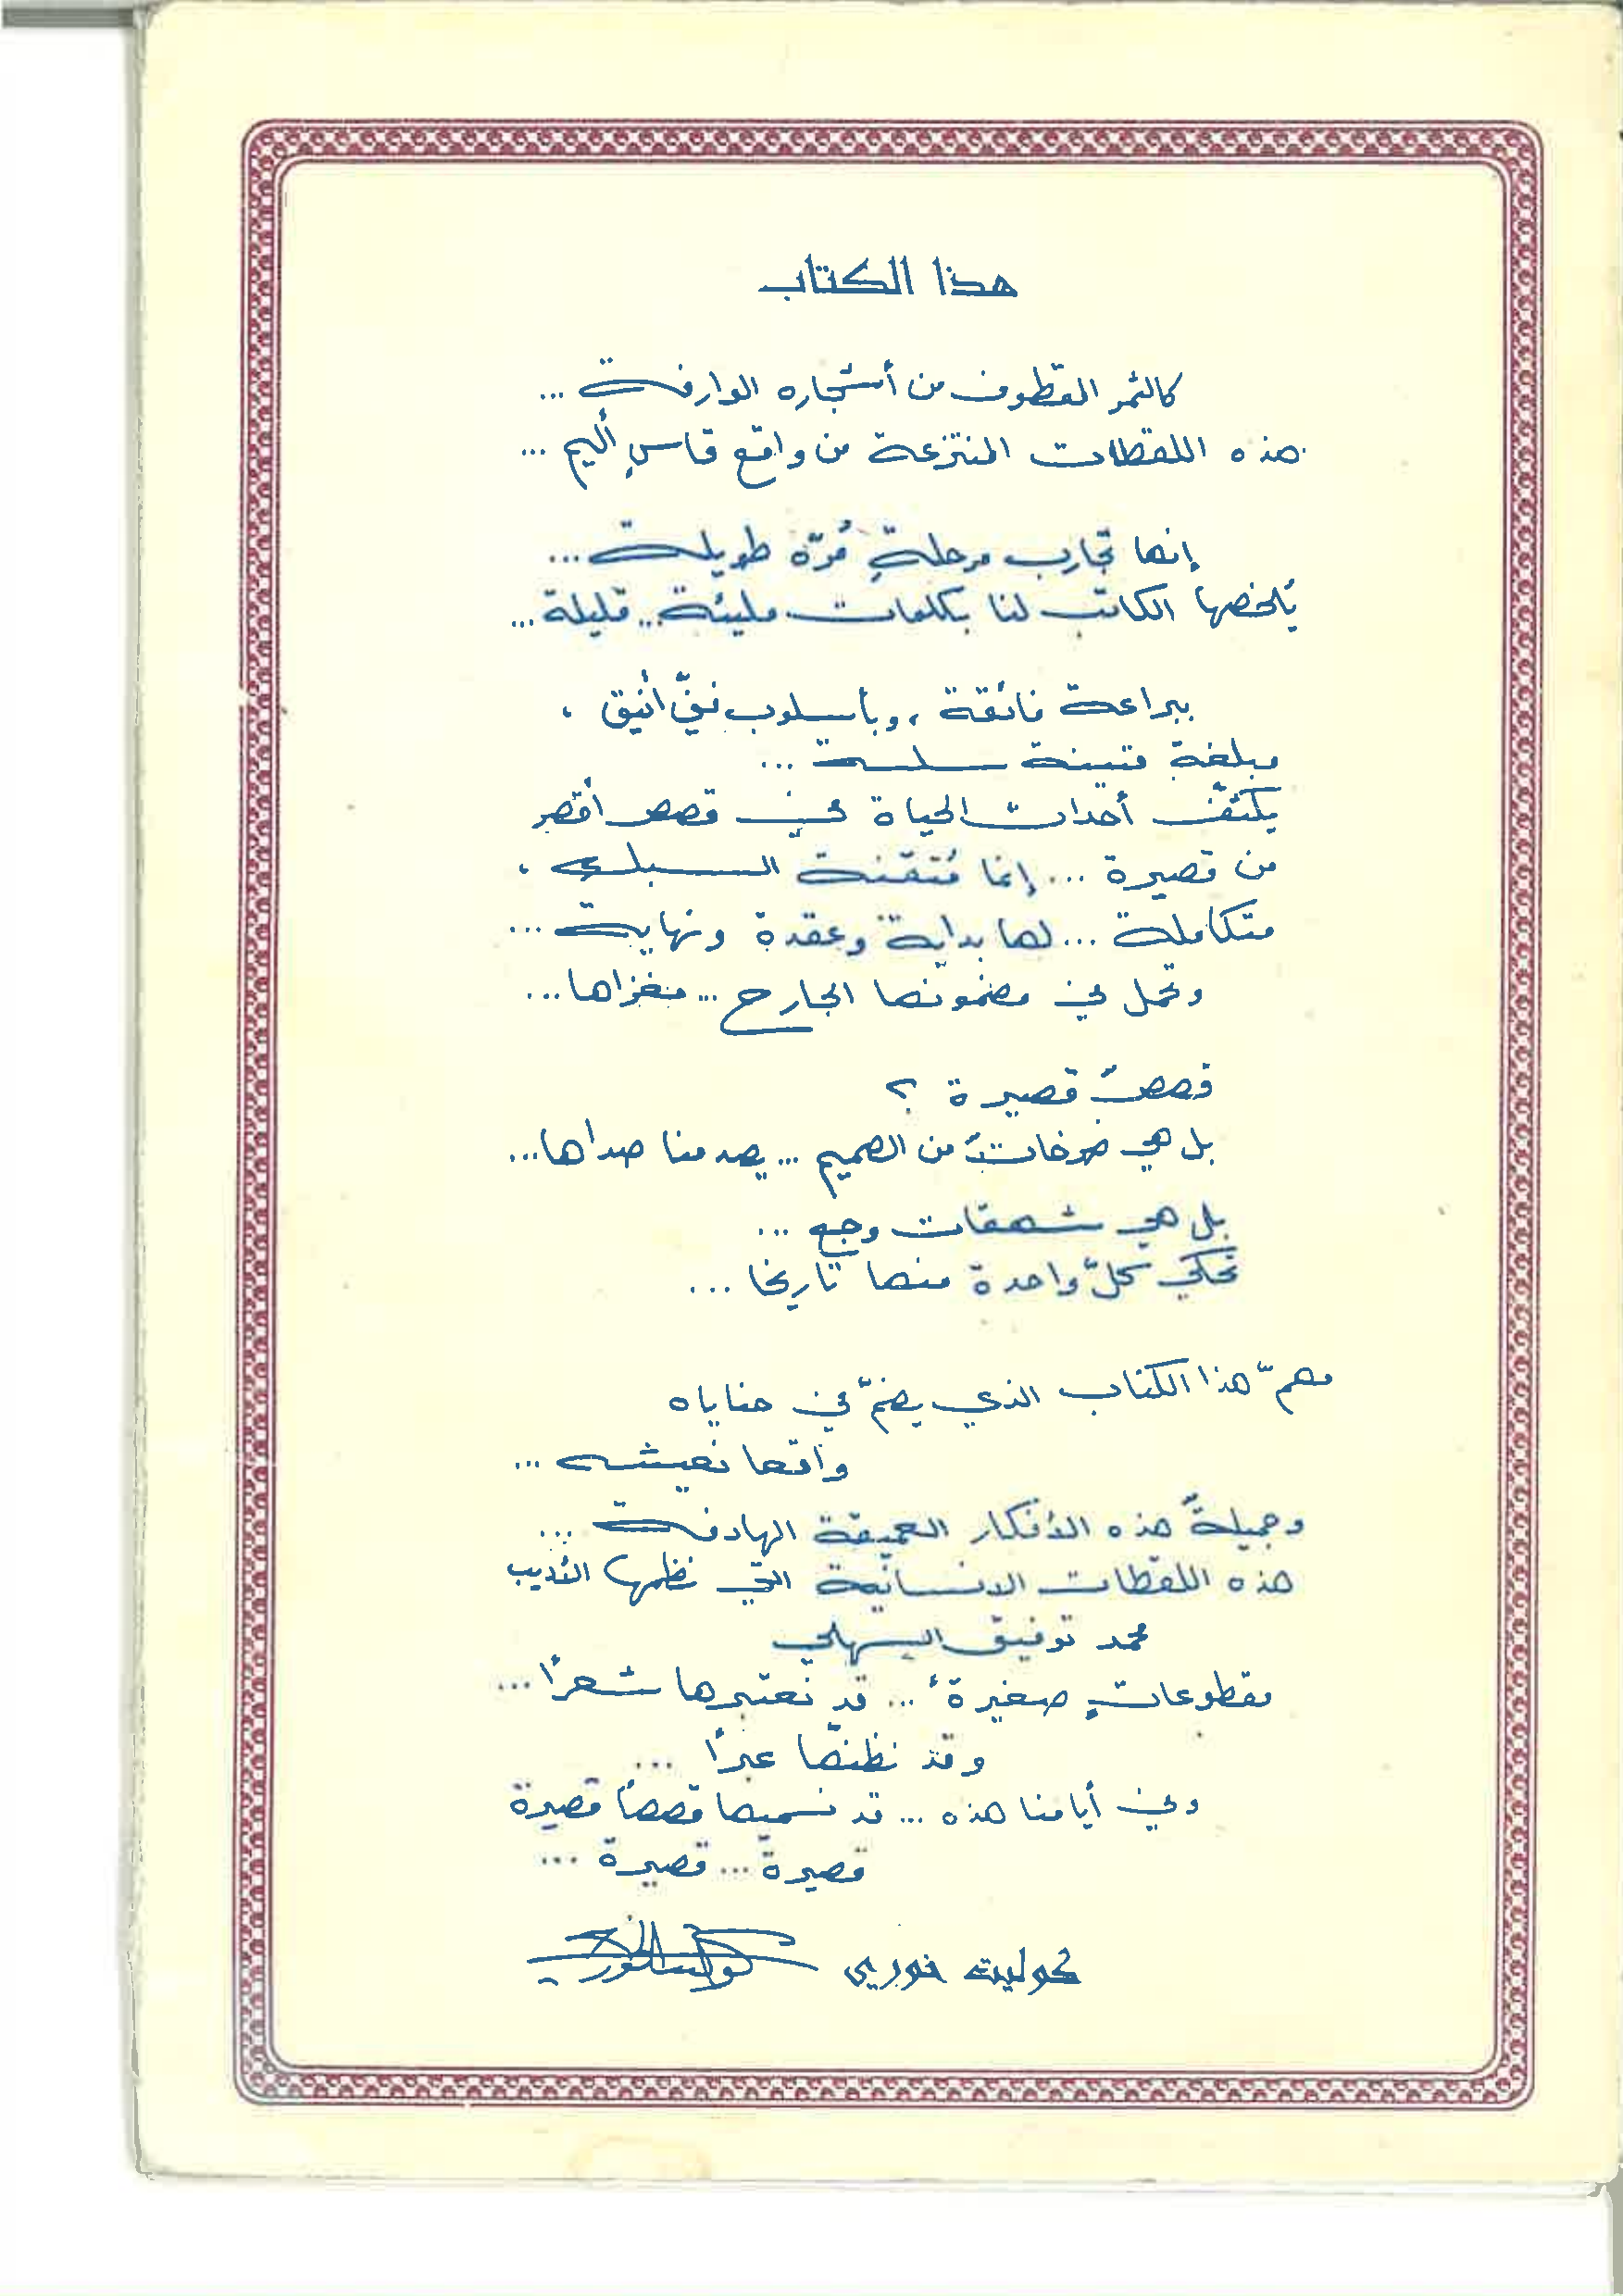 هذا الكتاب
كالثمر المقطوف من أشجاره الوارفة ...
هذه اللقطات المنتزعة من واقع قاسٍ أليم ...
إنها تجارب مرحلةٍ مُرّة طويلة ...
يُلخصها الكاتب لنا بكلمات مليئة ... قليلة ...
ببراعة فائقة ، وبأسلوب فنيّ أنيق ،
وبلغة متينة سلسة ...
يكثّف أحداث الحياة في قصص أقصر
من قصيرة ... إنما مُتقنة السبك ،
متكاملة ... لها بداية وعقدة ونهاية ...
وتحمل في مضمونها الجارح ... مغزاها ...
قصصٌ قصيرة ؟
بل هي صرخاتٌ من الصميم ... يصدمنا صداها ...
بل هي شهقات وجع ...
تحكي كلّ واحدة منها تاريخا ...
مهمّ هذا الكتاب الذي يضمّ في حناياه
واقعا نعيشه ...
وجميلةٌ هذه الأفكار العميقة الهادفة ...
هذه اللقطات الانسانية التي نظمها الأديب
محمد توفيق السهلي
مقطوعاتٍ صغيرة ... قد نعتبرها شعراً ...
وقد نظنها عبراً ...
وفي أيامنا هذه ... قد نسميها قصصاً قصيرة
قصيرة ... قصيرة ...
كوليت خوري كوليت الخوري